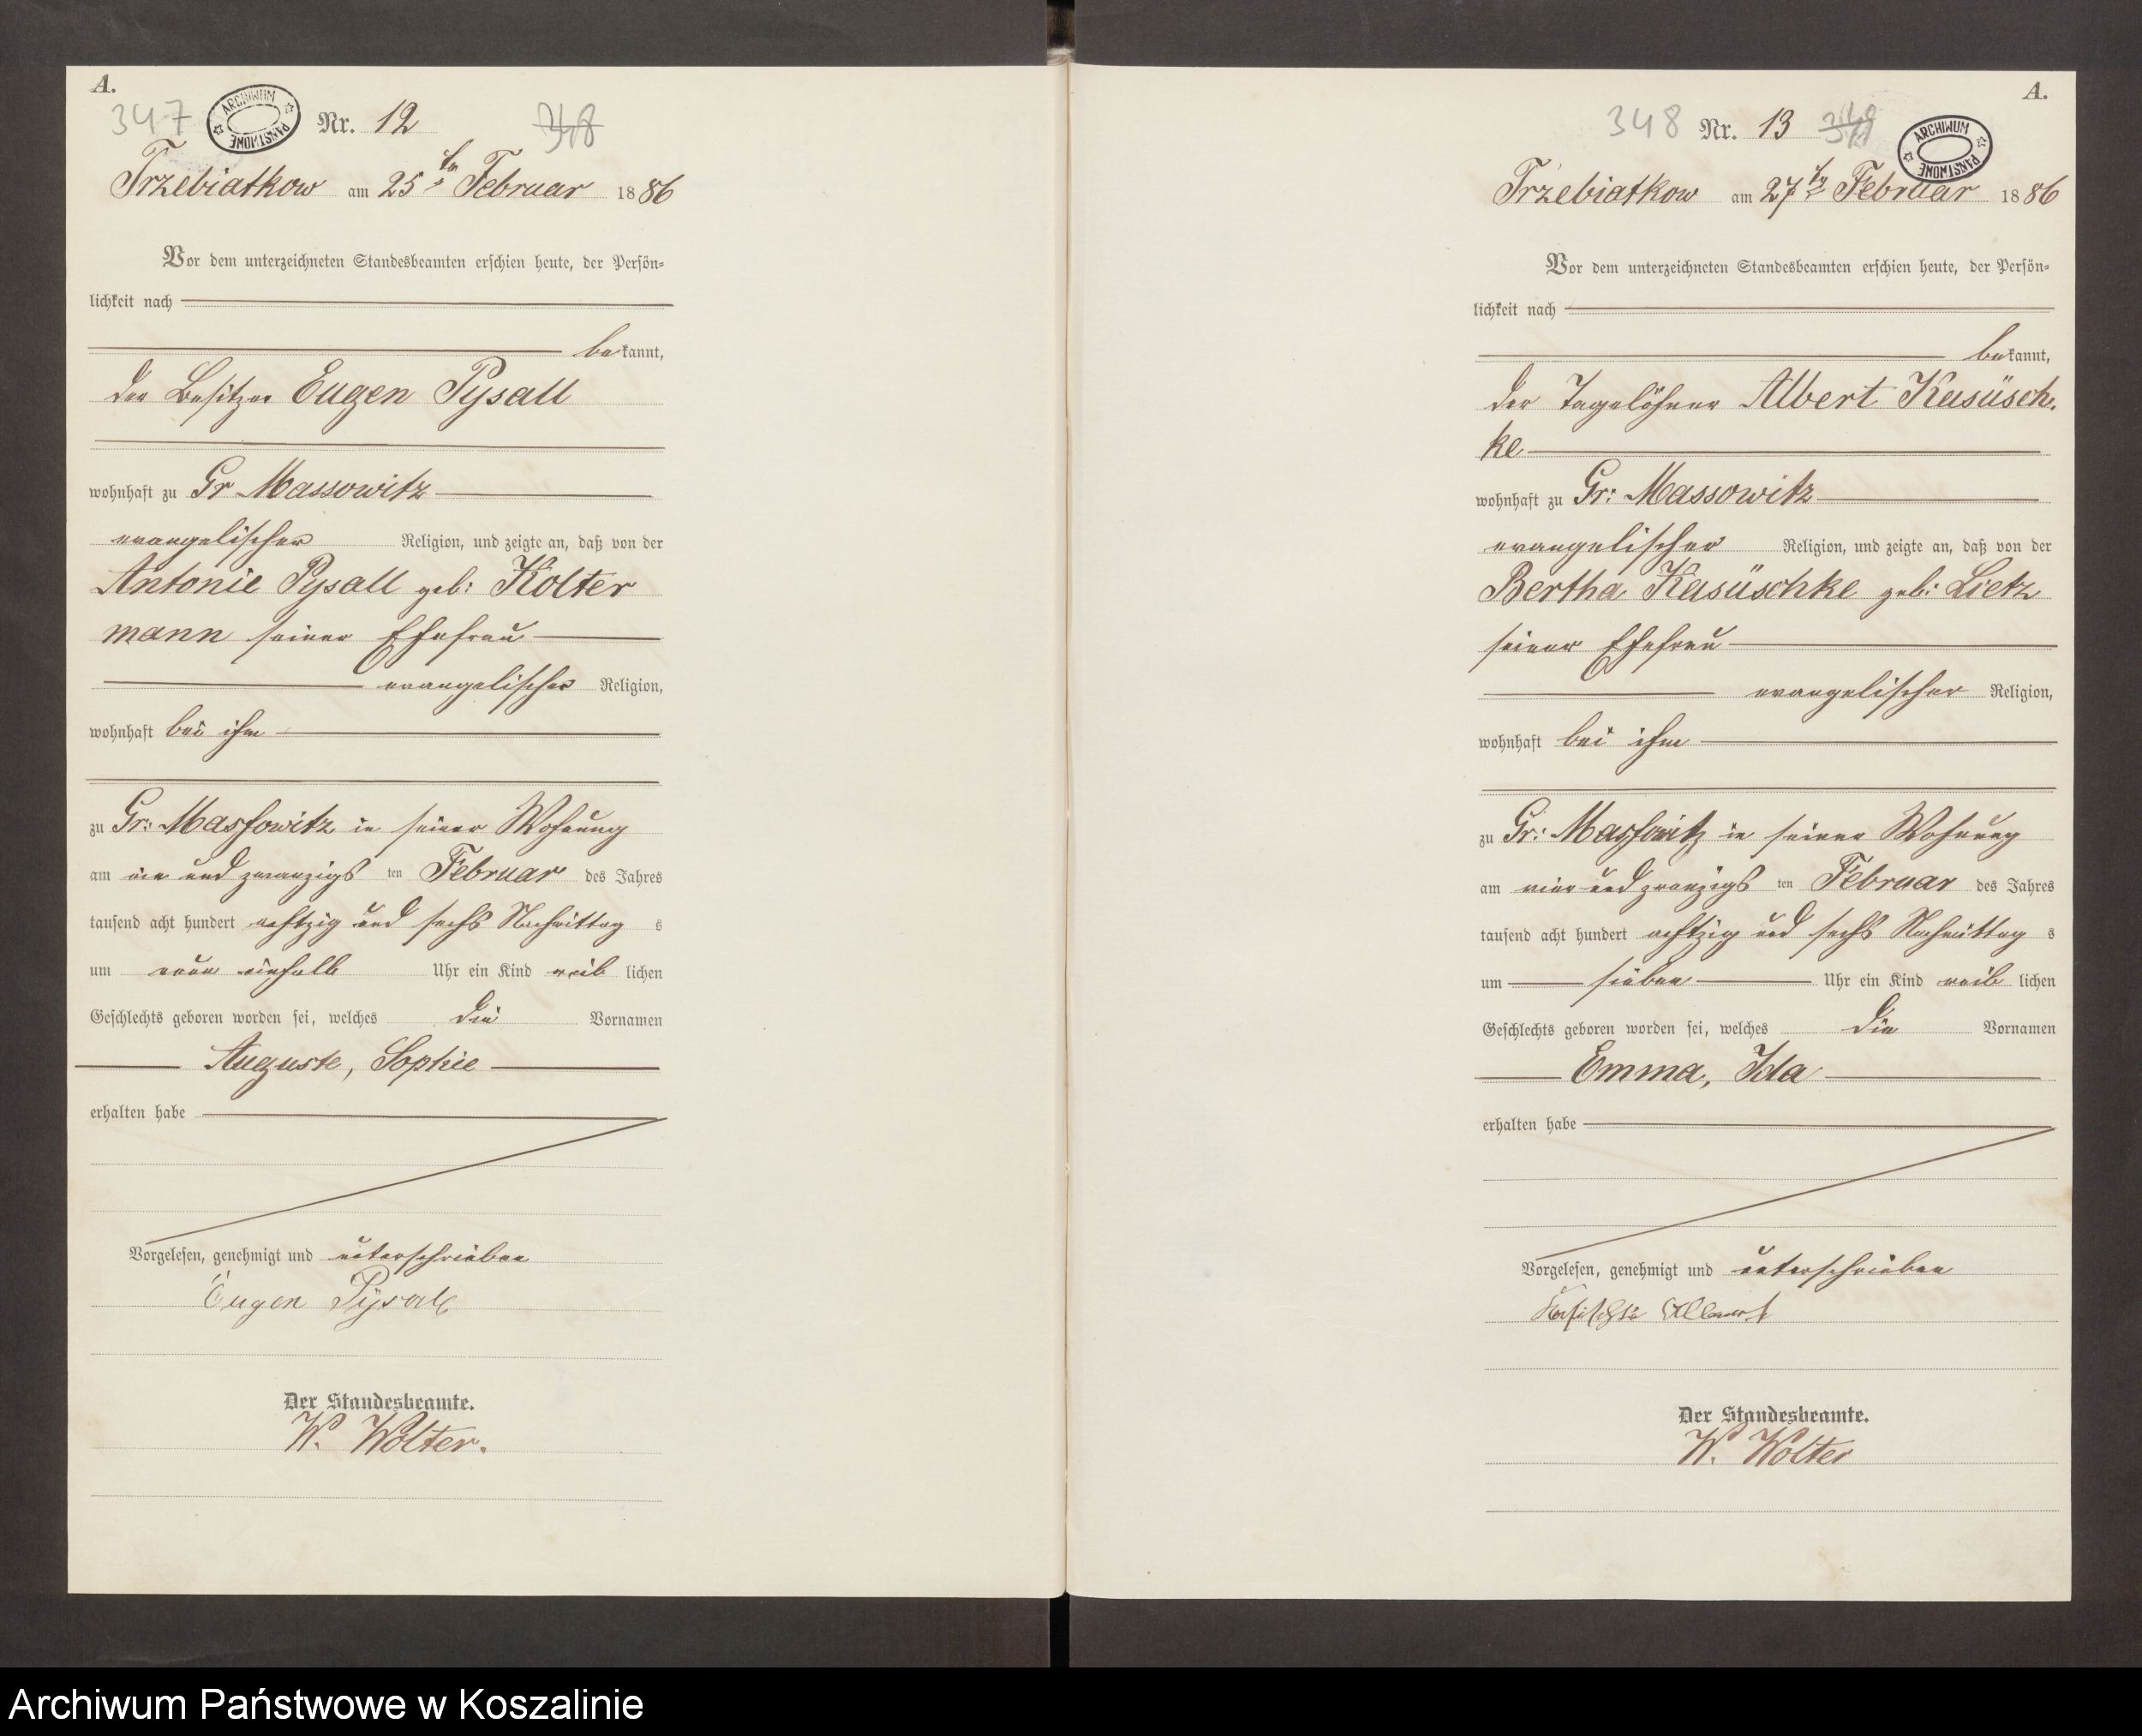 A.
347 ARCHIWUM PAŃSTWOWE Nr. 12 348
Trzebiatkow am 25ten Februar 1886
Vor dem unterzeichneten Standesbeamten erschien heute, der Persön-
lichkeit nach
bekannt,
der Besitzer Eugen Pysall
wohnhaft zu Gr Massowitz
evangelischer Religion, und zeigte an, daß von der
Antonie Pysall geb: Kolter
mann seiner Ehefrau
evangelischer Religion,
wohnhaft bei ihm
zu Gr: Massowitz in seiner Wohnung
am ein und zwanzigs ten Februar des Jahres
tausend acht hundert achtzig und sechs Nachmittag s
um neun einhalb Uhr ein Kind weib lichen
Geschlechts geboren worden sei, welches die Vornamen
Auguste, Sophie
erhalten habe
Vorgelesen, genehmigt und unterschrieben
Eugen Pysall
Der Standesbeamte.
W. Wolter.
A.
348 Nr. 13 349 ARCHIWUM PAŃSTWOWE
Trzebiatkow am 27ten Februar 1886
Vor dem unterzeichneten Standesbeamten erschien heute, der Persön-
lichkeit nach
bekannt,
der Tagelöhner Albert Kasüsch-
ke
wohnhaft zu Gr: Massowitz
evangelischer Religion, und zeigte an, daß von der
Bertha Kasüschke geb: Lietz
seiner Ehefrau
evangelischer Religion,
wohnhaft bei ihm
zu Gr: Massowitz in seiner Wohnung
am vier und zwanzigs ten Februar des Jahres
tausend acht hundert achtzig und sechs Nachmittag s
um sieben Uhr ein Kind weib lichen
Geschlechts geboren worden sei, welches die Vornamen
Emma, Ida
erhalten habe
Vorgelesen, genehmigt und unterschrieben
Albert
Der Standesbeamte.
W. Wolter
Archiwum Państwowe w Koszalinie